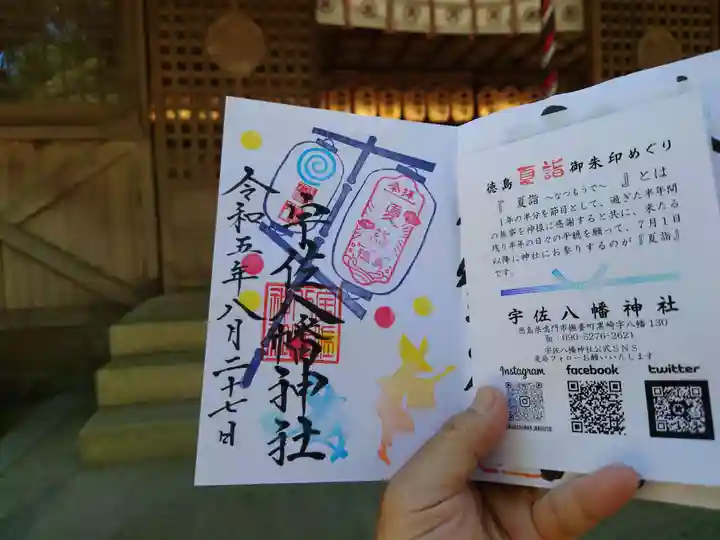 令和五年八月二十七日
宇佐八幡神社
夏詣
徳島 夏詣 御朱印めぐり
『夏詣 ～なつもうで～ 』とは
1年の半分を節目として、過ぎた半年間
の無事を神様に感謝すると共に、来たる
残り半年の日々の平穏を願って、7月1日
以降に神社にお参りするのが『夏詣』
です。
宇佐八幡神社
徳島県鳴門市撫養町黒崎字八幡 130
℡ 090-5276-2621
宇佐八幡神社公式SNS
是非フォローお願いいたします
Instagram
facebook
twitter